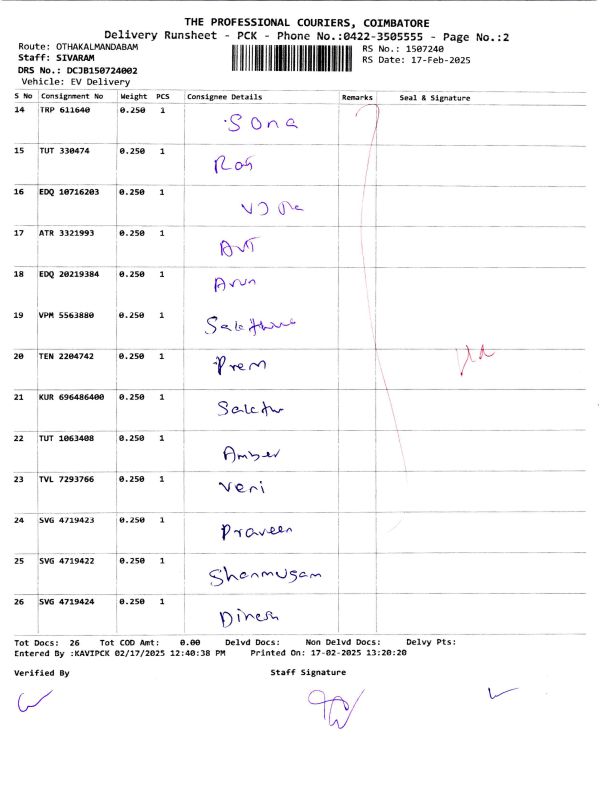 THE PROFESSIONAL COURIERS, COIMBATORE
Delivery Runsheet - PCK - Phone No.:0422-3505555 - Page No.:2
Route: OTHAKALMANDABAM
RS No.: 1507240
Staff: SIVARAM
RS Date: 17-Feb-2025
DRS No.: DCJB150724002
Vehicle: EV Delivery
S No Consignment No Weight PCS Consignee Details Remarks Seal & Signature
14 TRP 611640 0.250 1 Sona
15 TUT 330474 0.250 1
16 EDQ 10716203 0.250 1
17 ATR 3321993 0.250 1
18 EDQ 20219384 0.250 1 Arun
19 VPM 5563880 0.250 1
20 TEN 2204742 0.250 1 Prem
21 KUR 696486400 0.250 1
22 TUT 1063408 0.250 1 Amber
23 TVL 7293766 0.250 1 Veni
24 SVG 4719423 0.250 1 Praveen
25 SVG 4719422 0.250 1 Shanmugam
26 SVG 4719424 0.250 1 Dinesh
Tot Docs: 26 Tot COD Amt: 0.00 Delvd Docs: Non Delvd Docs: Delvy Pts:
Entered By :KAVIPCK 02/17/2025 12:40:38 PM Printed On: 17-02-2025 13:20:20
Verified By Staff Signature